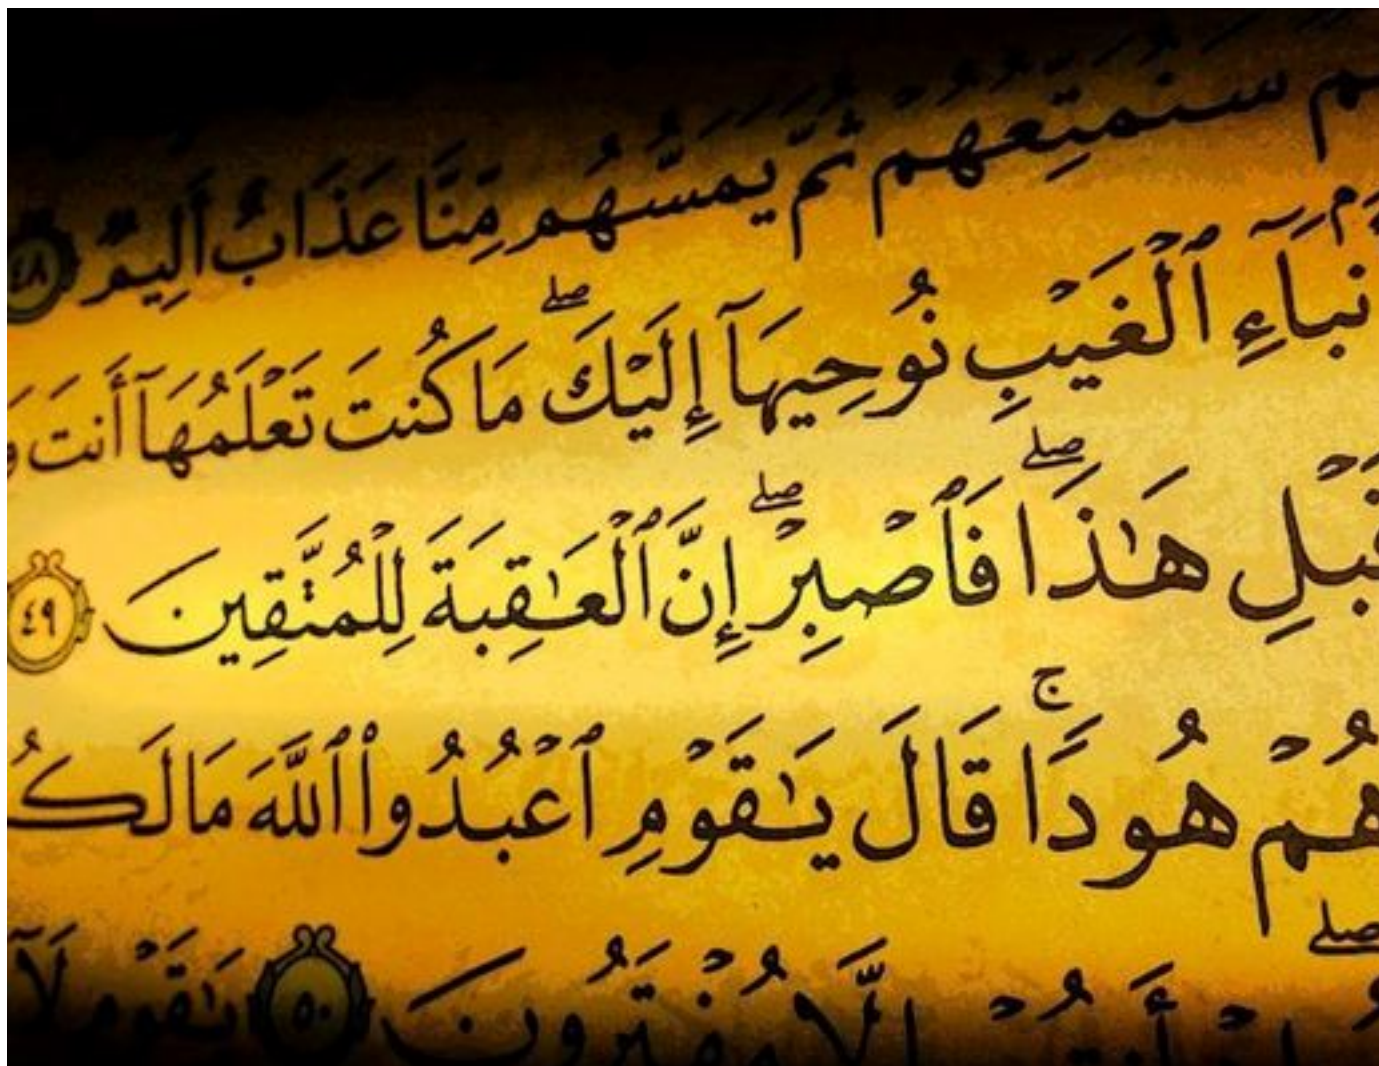 سَنُمَتِّعُهُمْ ثُمَّ يَمَسُّهُم مِّنَّا عَذَابٌ أَلِيمٌ ٤٨
نۢبَآءِ ٱلْغَيْبِ نُوحِيهَآ إِلَيْكَ ۖ مَا كُنتَ تَعْلَمُهَآ أَنتَ وَ
قَبْلِ هَٰذَا ۖ فَٱصْبِرْ ۖ إِنَّ ٱلْعَٰقِبَةَ لِلْمُتَّقِينَ ٤٩
هُمْ هُودًا ۚ قَالَ يَٰقَوْمِ ٱعْبُدُوا۟ ٱللَّهَ مَا لَكُ
أَنتُمْ إِلَّا مُفْتَرُونَ ٥٠ يَٰقَوْمِ لَآ